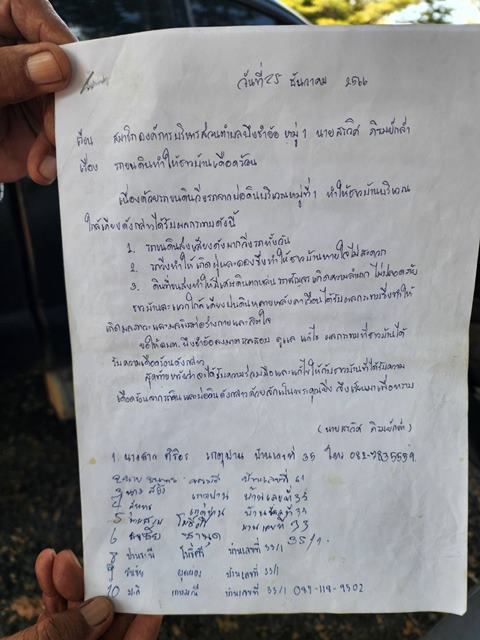 วันที่ 25 ธันวาคม 2566
เรียน สมาชิกองค์การบริหารส่วนตำบลบึงชำอ้อ หมู่ 1 นายสรวิศ ภิรมย์กล่ำ
เรื่อง รถขนดินทำให้ชาวบ้านเดือดร้อน
เนื่องด้วยรถขนดินวิ่งรถจากบ่อดินบริเวณหมู่ที่ 1 ทำให้ชาวบ้านบริเวณ
ใกล้เคียงดังกล่าวได้รับผลกระทบดังนี้
1. รถขนดินส่งเสียงดังมากวิ่งรถทั้งวัน
2. รถวิ่งทำให้เกิดฝุ่นละอองซึ่งทำให้ชาวบ้านหายใจไม่สะดวก
3. ดินที่ขนส่งทำให้มีเศษดินตกหล่น รถสัญจรเกิดความลำบาก ไม่ปลอดภัย
ชาวบ้านละแวกใกล้เคียงบ่อดินหลายหลังคาเรือนได้รับผลกระทบซึ่งทำให้
เกิดมลภาวะ และผลเสียต่อร่างกายและจิตใจ
ขอให้อบต. บึงชำอ้อลงมาตรวจสอบ ดูแล แก้ไข ผลกระทบที่ชาวบ้านได้
รับความเดือดร้อนดังกล่าว
สุดท้ายหวังว่าจะได้รับความร่วมมือและแก้ไขให้กับชาวบ้านที่ได้รับความ
เดือดร้อนจากรถดินและบ่อดินดังกล่าวด้วยสำนึกในพระคุณยิ่ง จึงเรียนมาเพื่อทราบ
(นายสรวิศ ภิรมย์กล่ำ)
1. นางสาว ศิริอร เกตุปาน บ้านเลขที่ 35 โทร 082-7835559
2 นาย บ้านเลขที่ 61
3 นาง เกตุปาน บ้านเลขที่ 35
4 เกตุปาน บ้านเลขที่ 35
5 โพธิ์ศรี บ้านเลขที่ 33
6 35/1
8 ปานมณี โพธิ์ศรี บ้านเลขที่ 33/1
9 บ้านเลขที่ 33/1
10 มาลี เกษมณี บ้านเลขที่ 33/1 089-118-9502